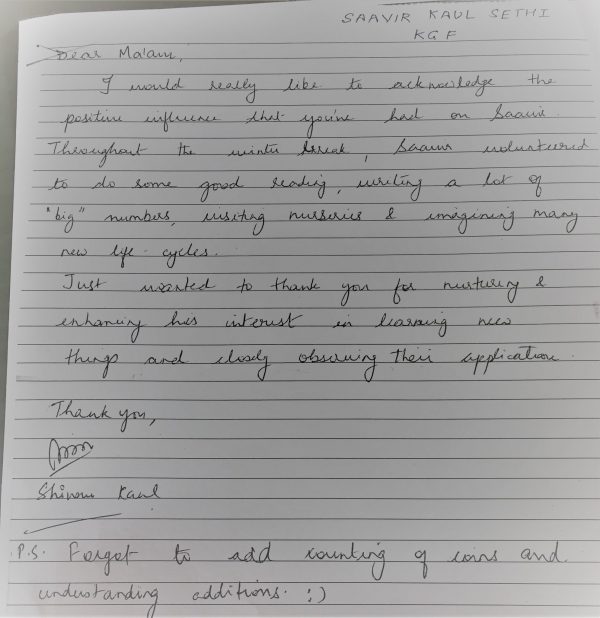 SAAVIR KAUL SETHI
KGF
Dear Ma'am,
I would really like to acknowledge the
positive influence that you've had on Saavir.
Throughout the winter break, Saavir volunteered
to do some good reading, writing a lot of
"big" numbers, visiting nurseries & imagining many
new life-cycles.
Just wanted to thank you for nurturing &
enhancing his interest in learning new
things and closely observing their application.
Thank you,
Kaul
P.S. Forgot to add counting of coins and
understanding additions. :)